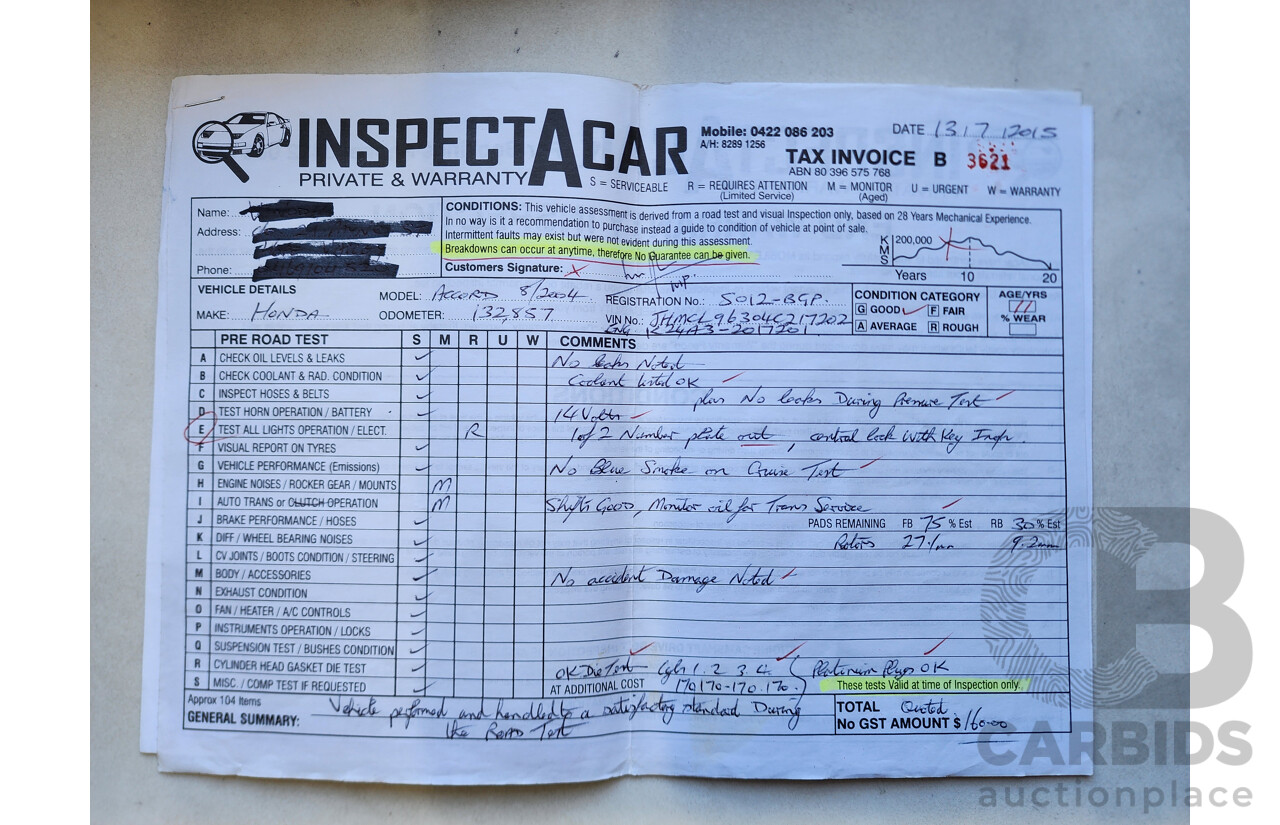 INSPECTACAR
PRIVATE & WARRANTY
Mobile: 0422 086 203
A/H: 8289 1256
DATE 13/7/2015
TAX INVOICE B 3621
ABN 80 396 575 768
S = SERVICEABLE R = REQUIRES ATTENTION (Limited Service) M = MONITOR (Aged) U = URGENT W = WARRANTY
Name:
Address:
Phone:
CONDITIONS: This vehicle assessment is derived from a road test and visual Inspection only, based on 28 Years Mechanical Experience.
In no way is it a recommendation to purchase instead a guide to condition of vehicle at point of sale.
Intermittent faults may exist but were not evident during this assessment.
Breakdowns can occur at anytime, therefore No Guarantee can be given.
Customers Signature: X
KMS 200,000
Years 10 20
VEHICLE DETAILS
MAKE: HONDA
MODEL: ACCORD 8/2004
ODOMETER: 132,857
REGISTRATION No.: S012-BGP
VIN No.: JHMCL96304C217202
ENG K24A3-2017201
CONDITION CATEGORY
G GOOD ✓ F FAIR
A AVERAGE R ROUGH
AGE/YRS
11
% WEAR
PRE ROAD TEST S M R U W COMMENTS
A CHECK OIL LEVELS & LEAKS ✓ No leaks Noted
B CHECK COOLANT & RAD. CONDITION ✓ Coolant level OK ✓
C INSPECT HOSES & BELTS ✓ plus No leaks During Pressure Test ✓
D TEST HORN OPERATION / BATTERY ✓ 14 Volts ✓
E TEST ALL LIGHTS OPERATION / ELECT. R 1 of 2 Number plate out, central lock with Key Inop.
F VISUAL REPORT ON TYRES ✓
G VEHICLE PERFORMANCE (Emissions) ✓ No Blue Smoke on Cruise Test ✓
H ENGINE NOISES / ROCKER GEAR / MOUNTS M
I AUTO TRANS or CLUTCH OPERATION M Shifts Good, Monitor oil for Trans Service ✓
J BRAKE PERFORMANCE / HOSES ✓ PADS REMAINING FB 75 % Est RB 30 % Est
K DIFF / WHEEL BEARING NOISES ✓ Rotors 27.1mm 9.2mm
L CV JOINTS / BOOTS CONDITION / STEERING ✓
M BODY / ACCESSORIES ✓ No accident Damage Noted ✓
N EXHAUST CONDITION ✓
O FAN / HEATER / A/C CONTROLS ✓
P INSTRUMENTS OPERATION / LOCKS ✓
Q SUSPENSION TEST / BUSHES CONDITION ✓
R CYLINDER HEAD GASKET DIE TEST ✓ OK Die Test Cyls 1. 2 3 4. Platinum Plugs OK
S MISC. / COMP TEST IF REQUESTED ✓ AT ADDITIONAL COST 170 170-170.170. These tests Valid at time of Inspection only.
Approx 104 Items
GENERAL SUMMARY: Vehicle performed and handled to a satisfactory standard During
the Road Test
TOTAL Quoted
No GST AMOUNT $ 160.00
CARBIDS
auctionplace